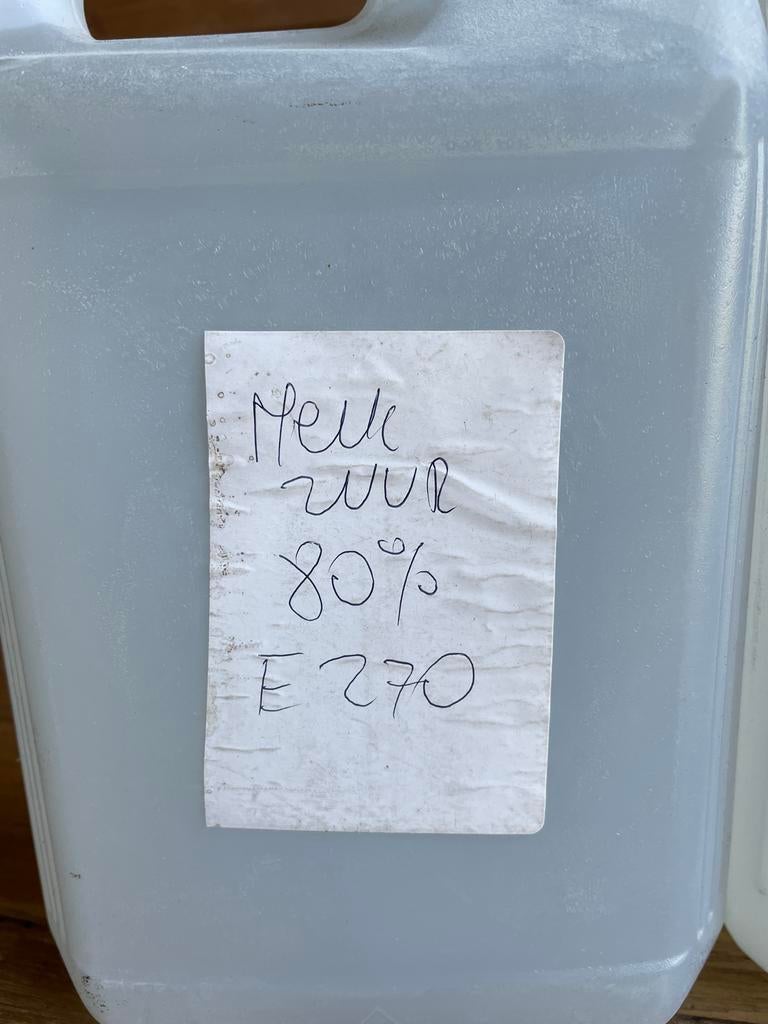 Melk
zuur
80%
E 270